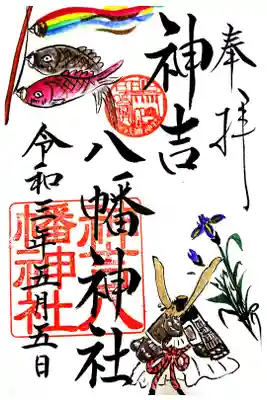 奉拝
神吉
八幡神社
令和三年五月五日